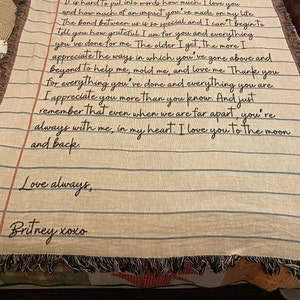 It is hard to put into words how much I love you
and how much of an impact you've made on my life.
The bond between us is so special and I can't begin to
tell you how grateful I am for you and everything
you've done for me. The older I get, the more I
appreciate the ways in which you've gone above and
beyond to help me, mold me, and love me. Thank you
for everything you've done and everything you are.
I appreciate you more than you know. And just
remember that even when we are far apart, you're
always with me, in my heart. I love you to the moon
and back.
Love always,
Britney xoxo